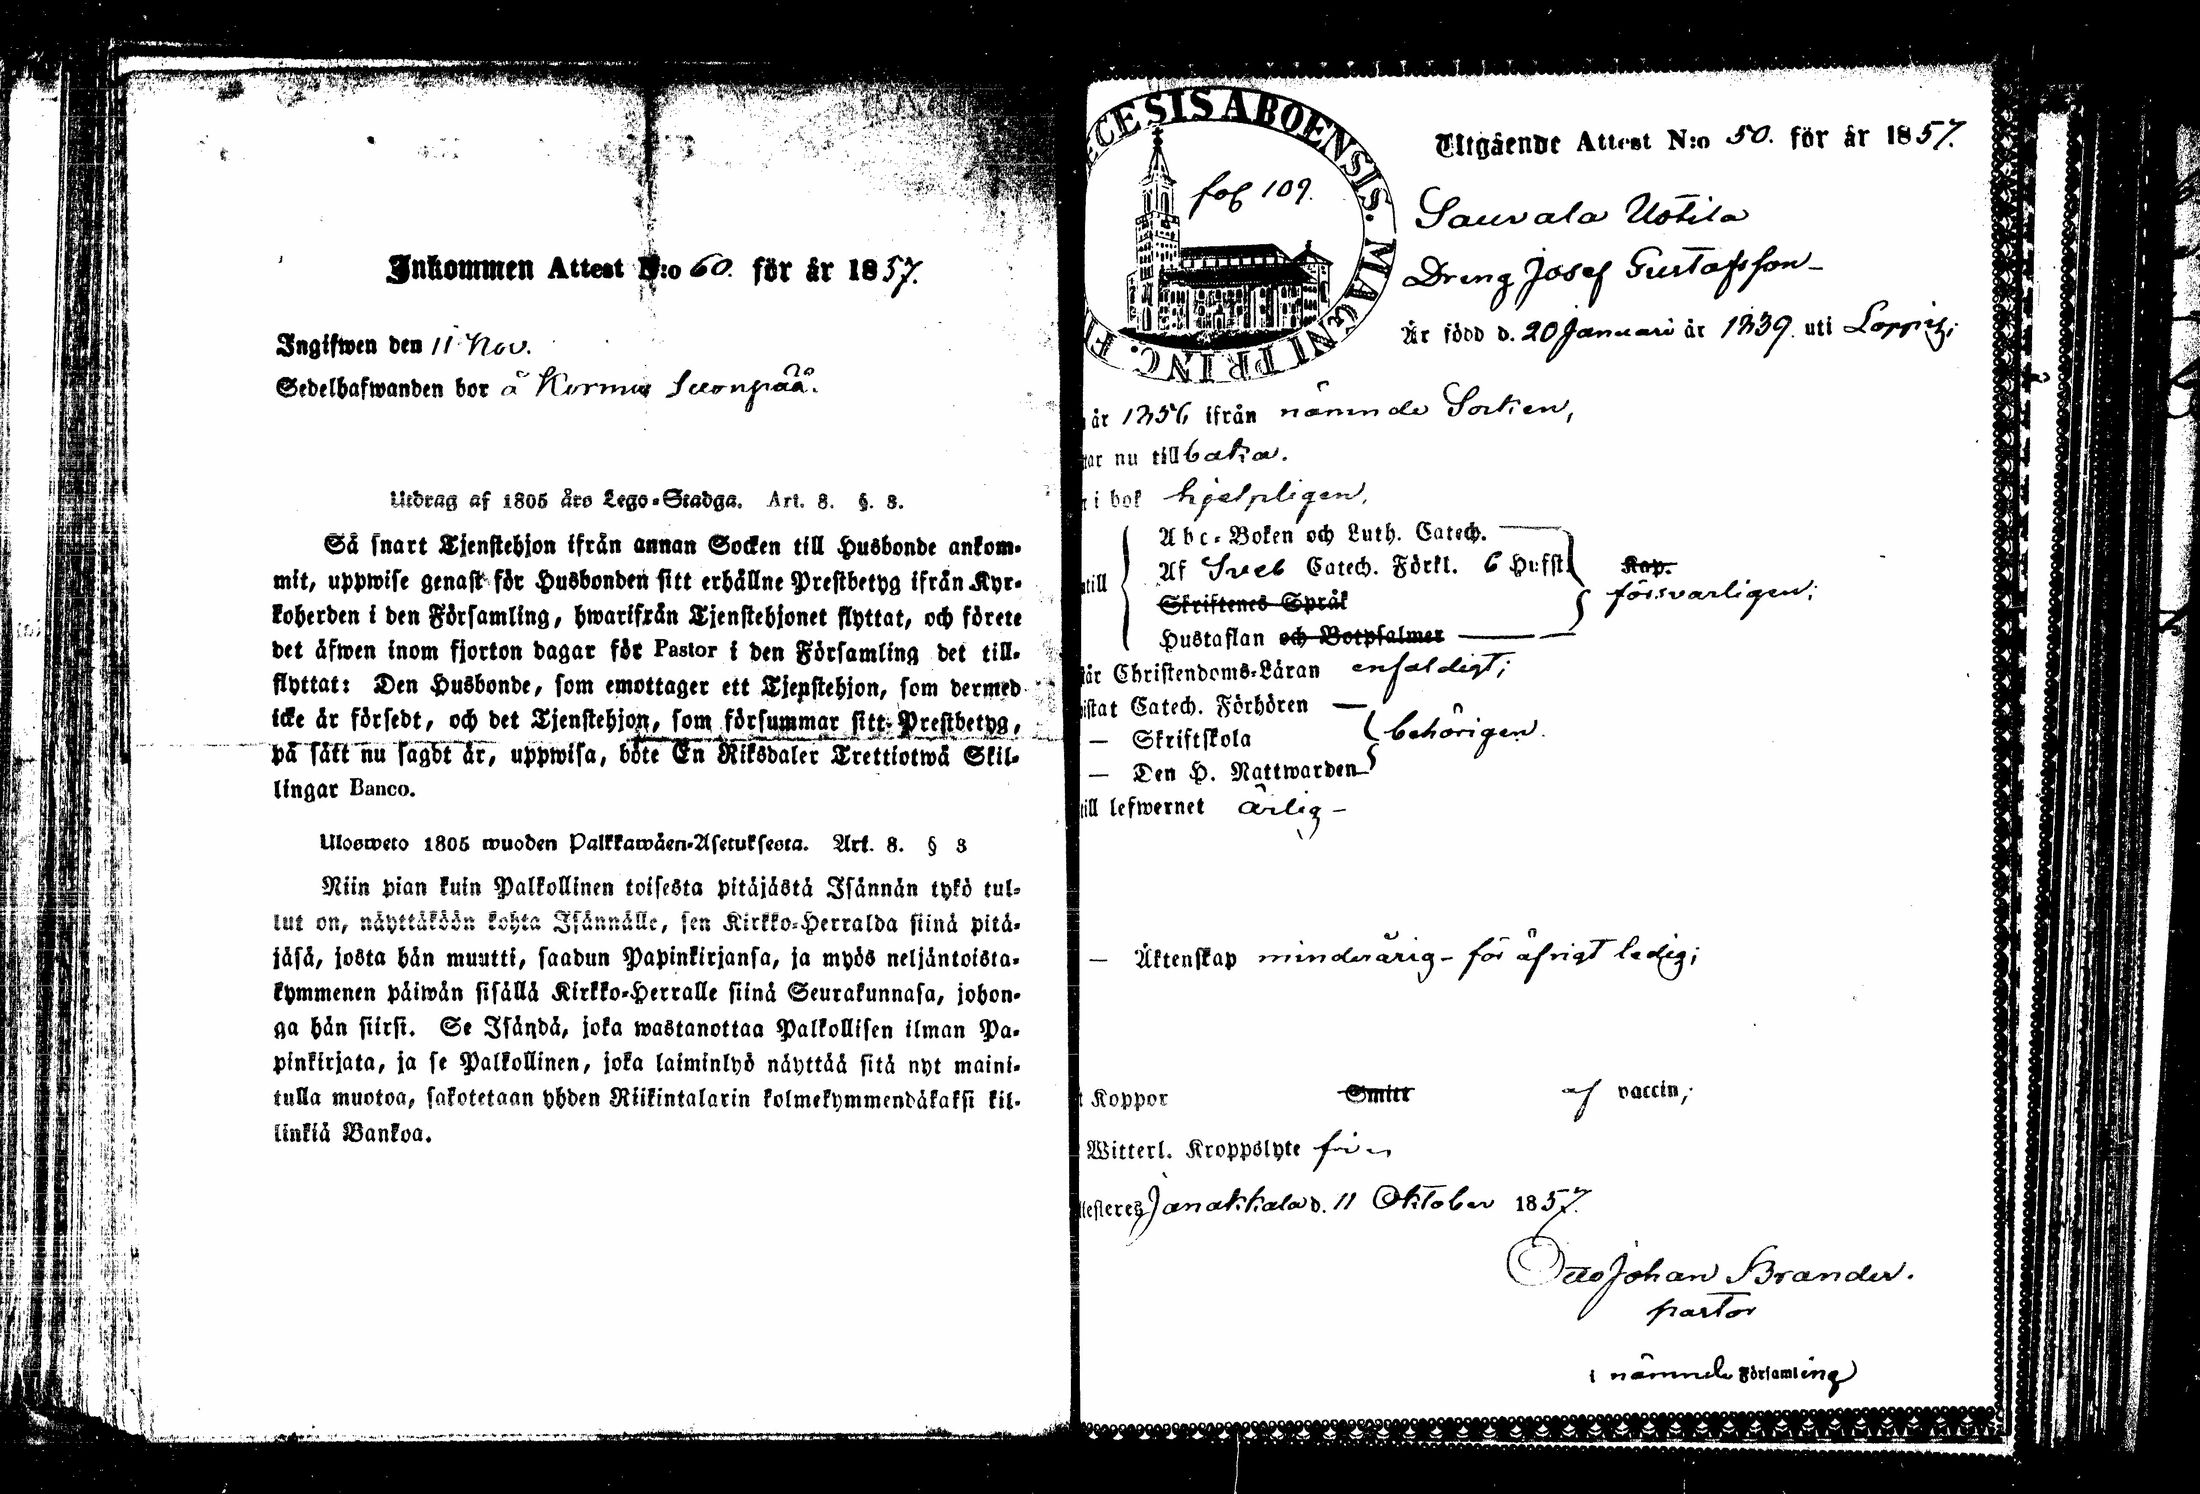 Inkommen Attest N:o 60. för år 1857.
Ingifwen den 11 Nov.
Sedelhafwanden bor å Kormu Suonpää.
Utdrag af 1805 års Lego-Stadga. Art. 8. §. 3.
Så snart Tjenstehjon ifrån annan Socken till Husbonde ankom-
mit, uppwise genast för Husbonden sitt erhållne Prestbetyg ifrån Kyr-
koherden i den Församling, hwarifrån Tjenstehjonet flyttat, och förete
det äfwen inom fjorton dagar för Pastor i den Församling det till-
flyttat: Den Husbonde, som emottager ett Tjenstehjon, som dermed
icke är försedt, och det Tjenstehjon, som försummar sitt Prestbetyg,
på sätt nu sagdt är, uppwisa, böte En Riksdaler Trettiotwå Skil-
lingar Banco.
Ulosweto 1805 wuoden Palkkawäen-Asetuksesta. Art. 8. § 3
Niin pian kuin Palkollinen toisesta pitäjästä Isännän tykö tul-
lut on, näyttäköön kohta Isännälle, sen Kirkko-Herralda siinä pitä-
jäsä, josta hän muutti, saadun Papinkirjansa, ja myös neljäntoista-
kymmenen päiwän sisällä Kirkko-Herralle siinä Seurakunnasa, johon-
ga hän siirsi. Se Isändä, joka wastanottaa Palkollisen ilman Pa-
pinkirjata, ja se Palkollinen, joka laiminlyö näyttää sitä nyt maini-
tulla muotoa, sakotetaan yhden Riikintalarin kolmekymmendäkaksi kil-
linkiä Bankoa.
ECESIS ABOENSIS. MAGNI PRINC. FI
fol 109.
Utgående Attest N:o 50. för år 1857.
Sauvala Uotila
Dreng Josef Gustafsson
Är född d. 20 Januari år 1839. uti Loppis;
år 1856 ifrån nämnde Socken,
ar nu tillbaka.
i bok hjelpligen,
till
Abc-Boken och Luth. Catech.
Af Sveb Catech. Förkl. 6 Hufst. Kap.
försvarligen;
Skriftenes Språk
Hustaflan och Botpsalmer
år Christendoms-Läran enfaldigt;
istat Catech. Förhören
— Skriftskola behörigen.
— Den H. Nattwarden
till lefwernet ärlig
— Äktenskap minderårig - för öfrigt ledig;
t Koppor Smitt af vaccin;
Witterl. Kroppslyte fri
testeres Janakkala d. 11 Oktober 1857.
Otto Johan Brander.
pastor
i nämnde Församling